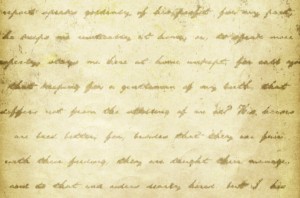 report speaks goldenly of his profit for my part,
he keeps me rustically at home, or, to speak more
properly, stays me here at home unkept: for call you
that keeping for a gentleman of my birth, that
differs not from the stalling of an ox? His horses
are bred better; for, besides that they are fair
with their feeding, they are taught their manage,
and to that end riders dearly hired: but I, his